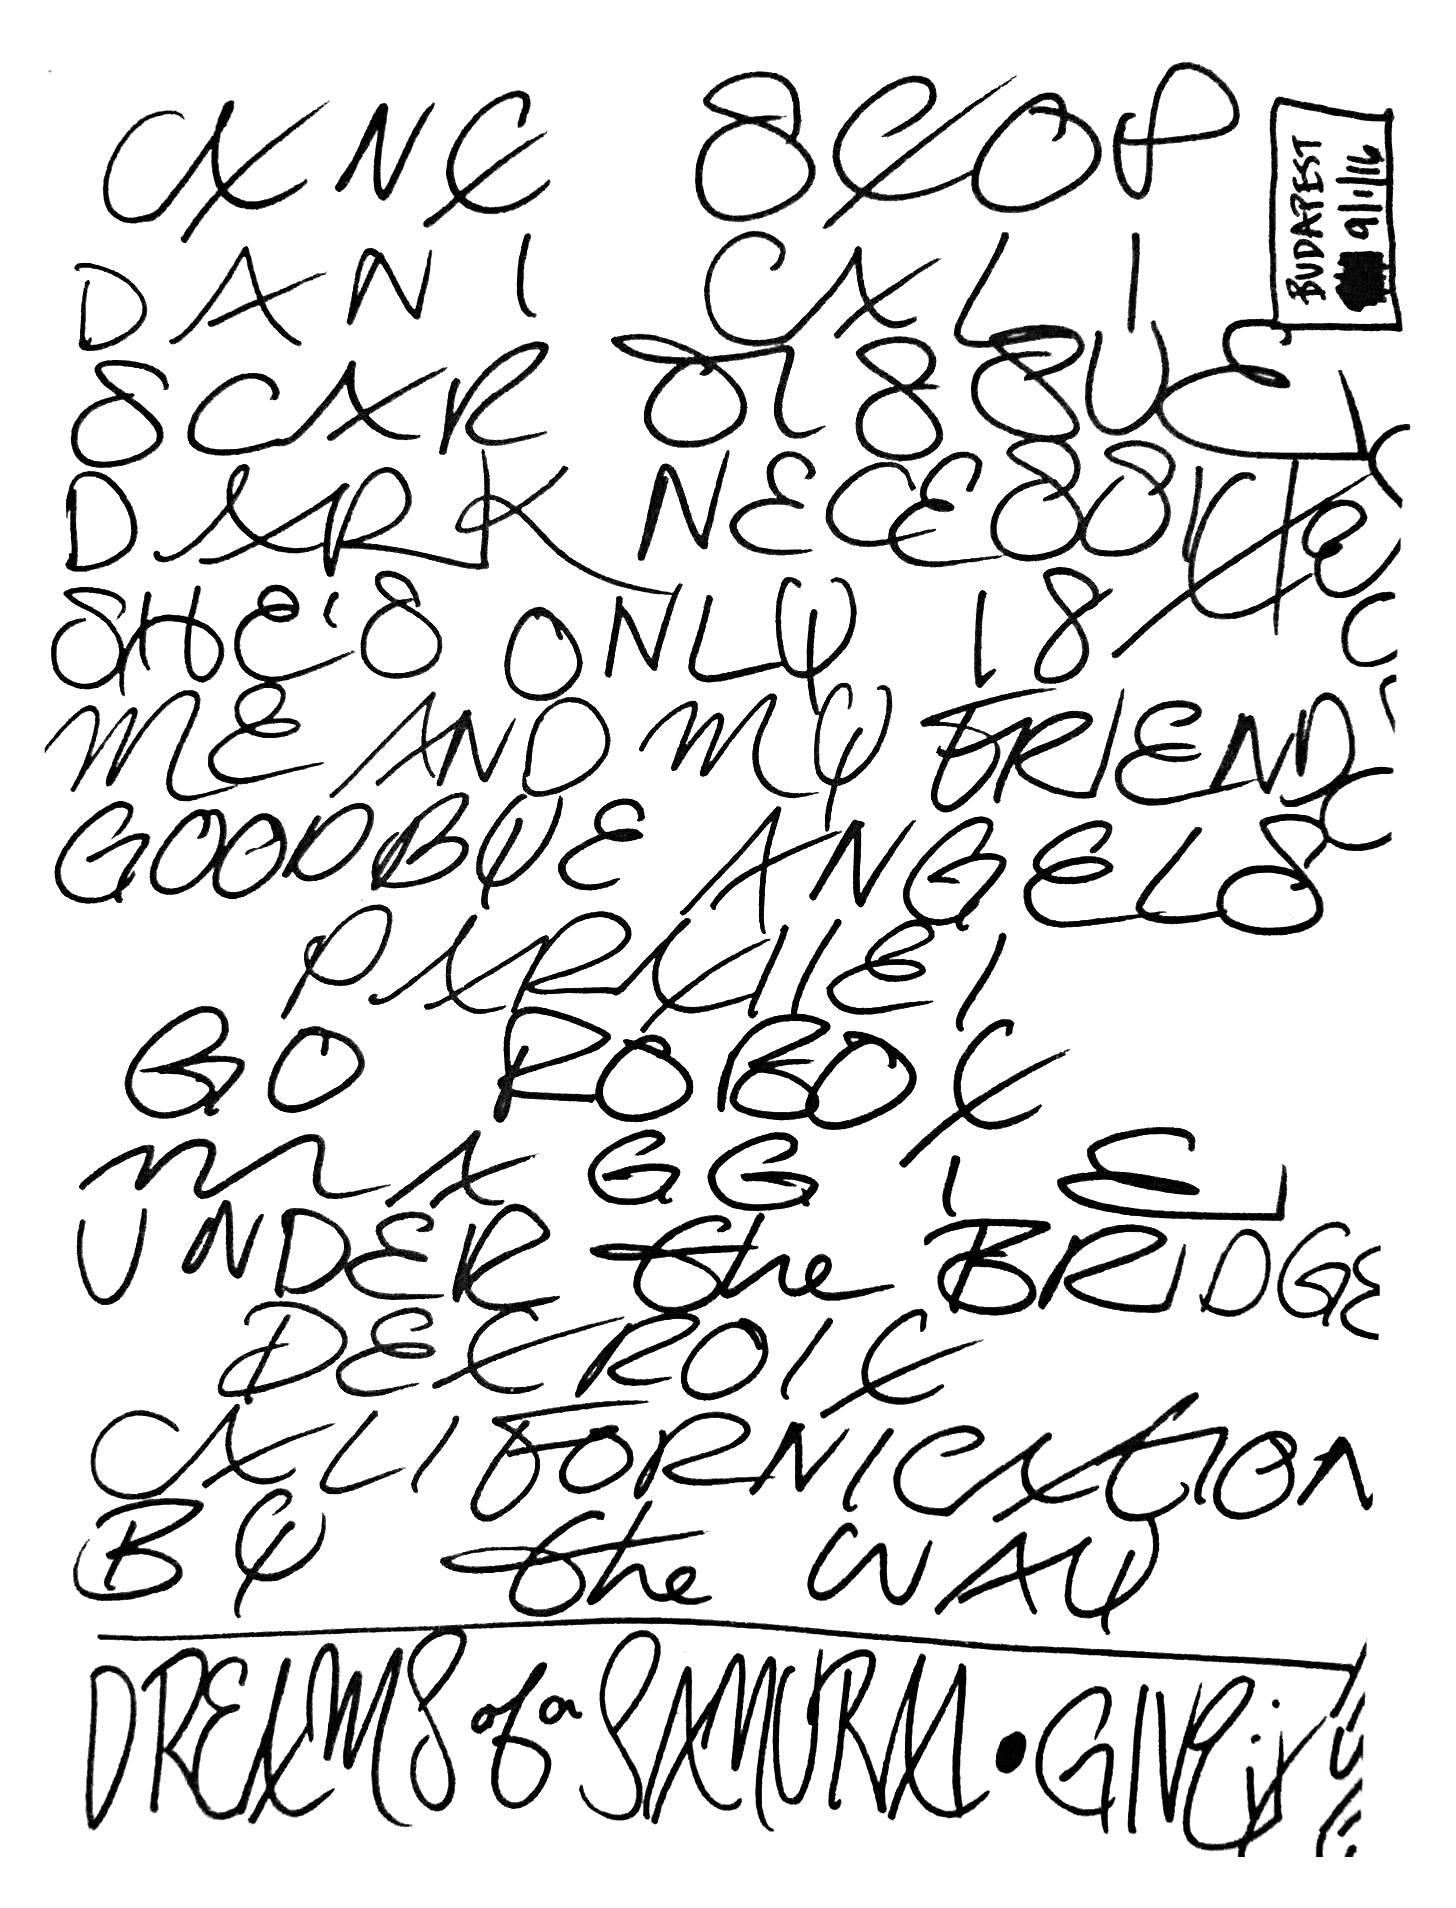 CAN'T STOP
BUDAPEST
9/1/16
DANI CALI
SCAR TISSUE
DARK NECESSITIE
SHE'S ONLY 18
ME AND MY FRIEND
GOODBYE ANGELS
PARALLEL
GO ROBOT
MAGGIE
UNDER the BRIDGE
DETROIT
CALIFORNICATION
BY the WAY
DREAMS of a SAMURAI • GIVE it